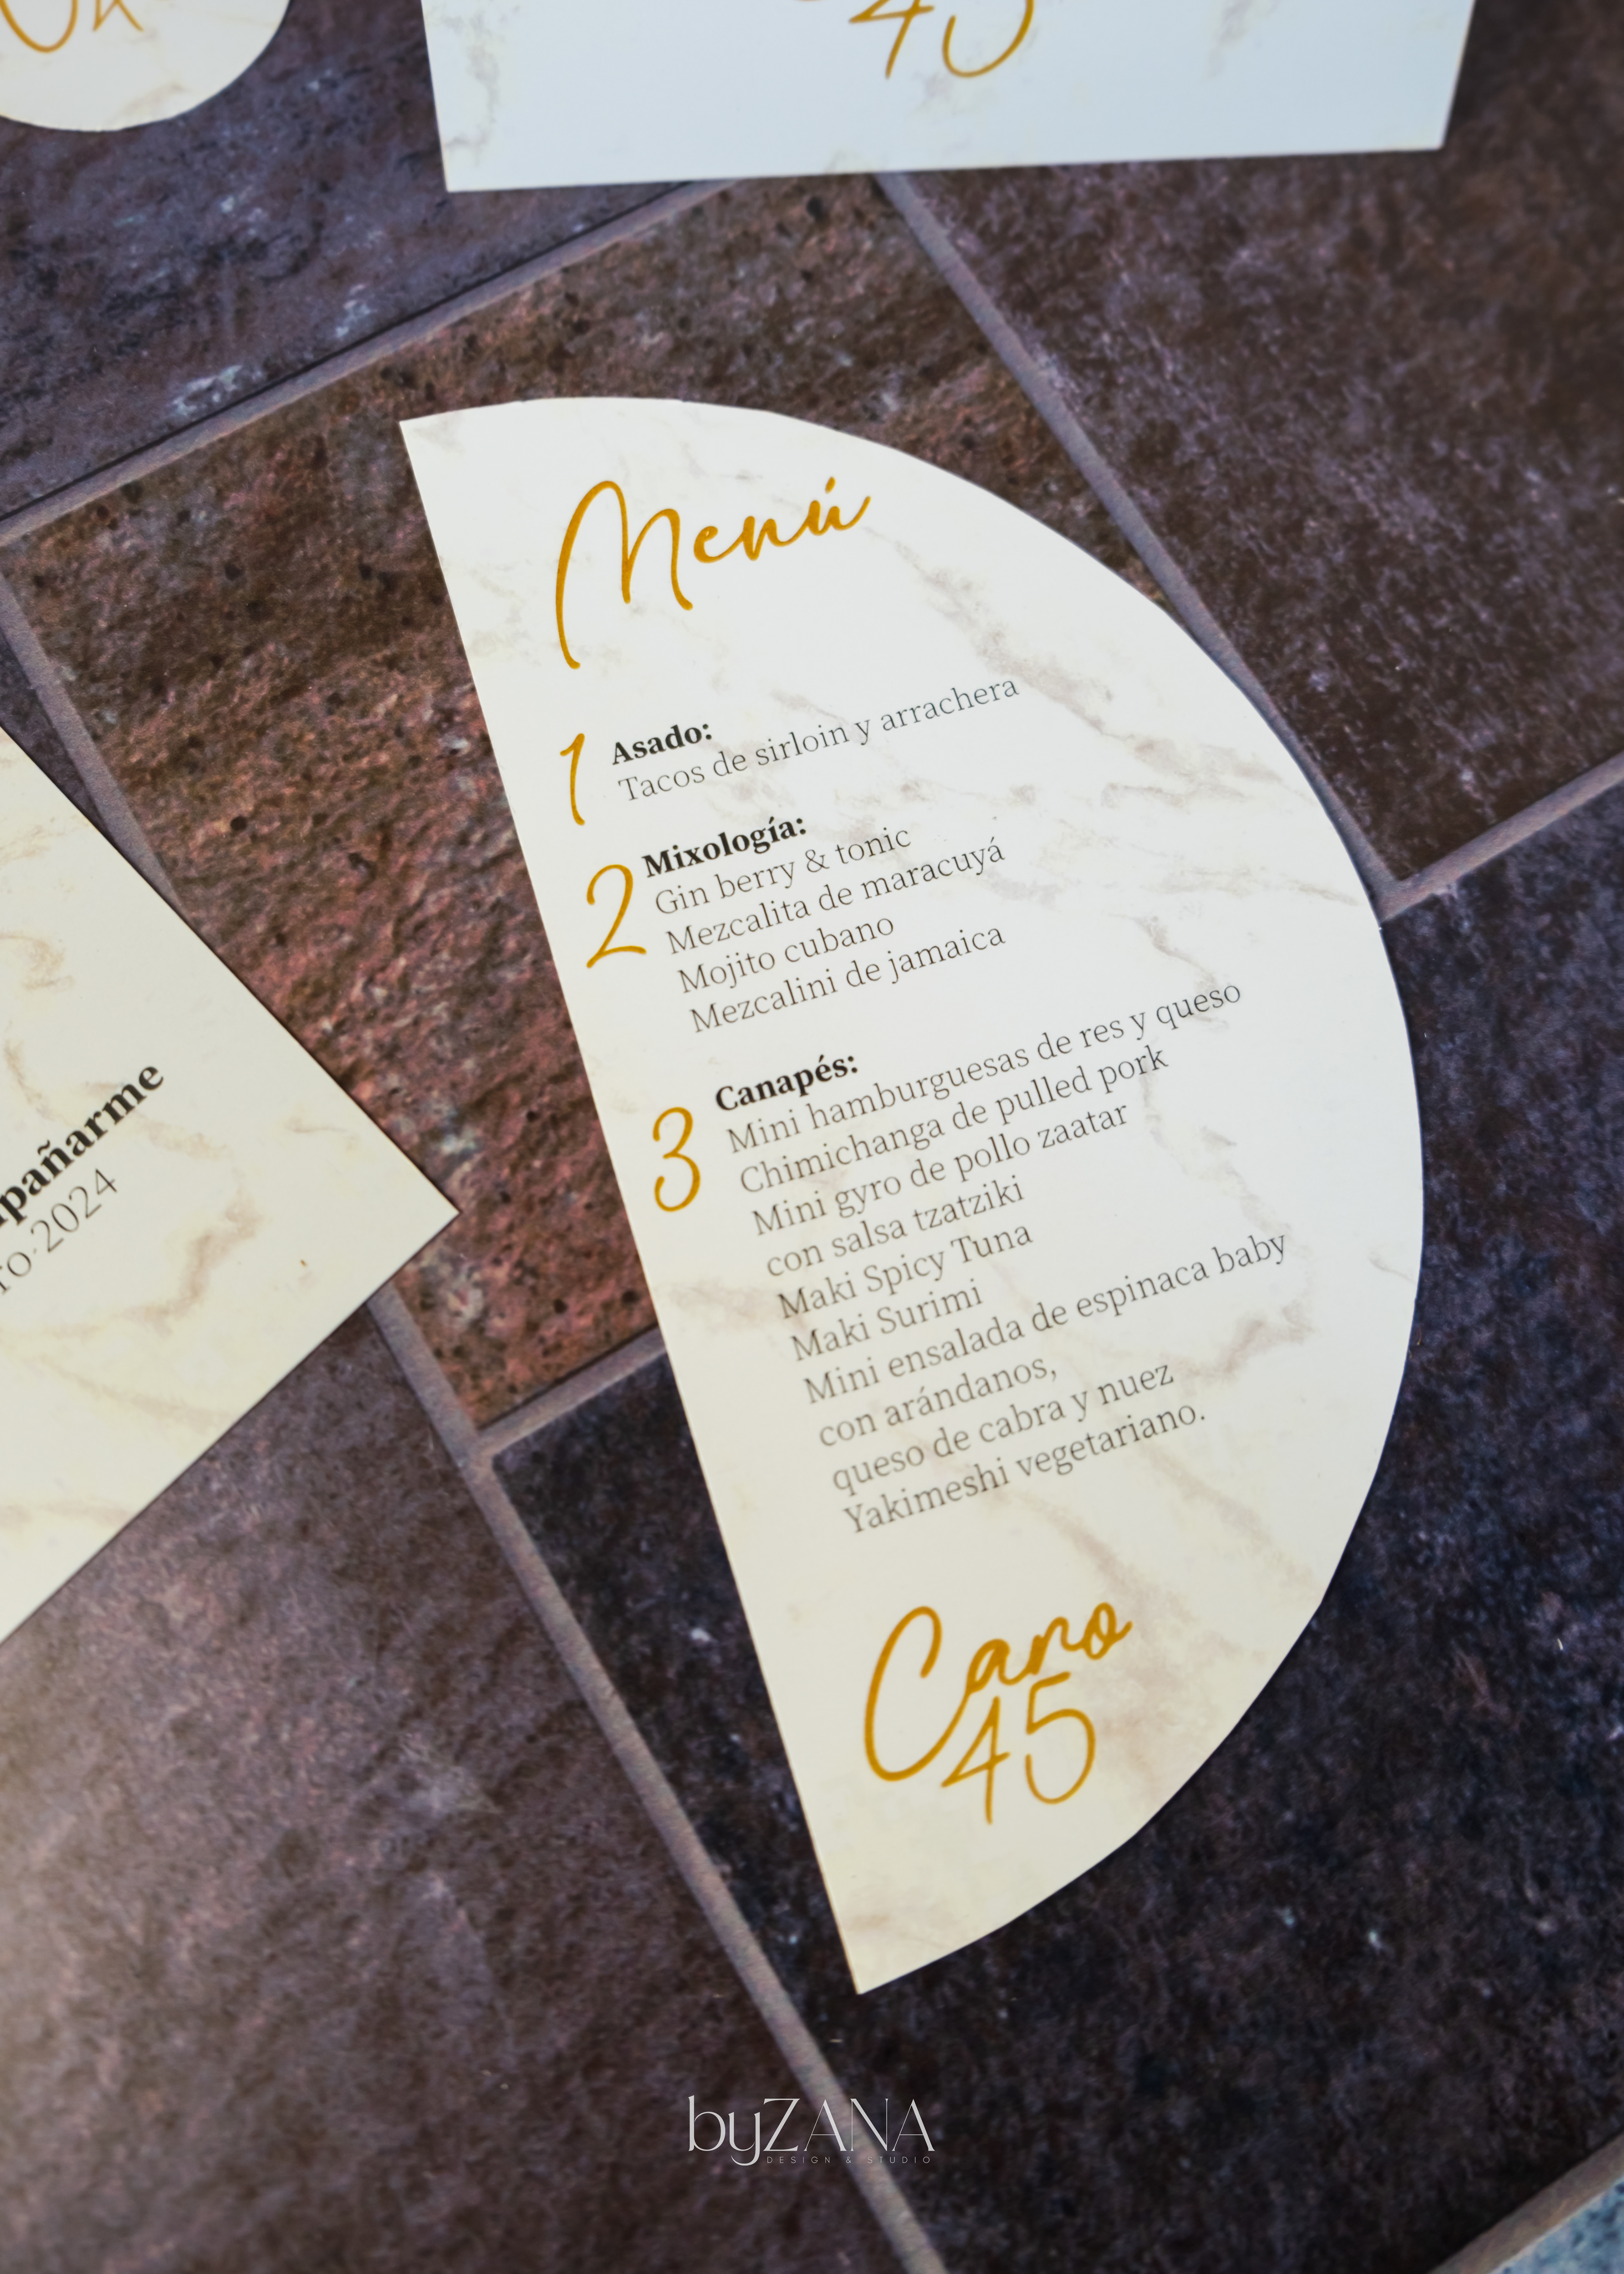 45
Menú
1
Asado:
Tacos de sirloin y arrachera
2
Mixología:
Gin berry & tonic
Mezcalita de maracuyá
Mojito cubano
Mezcalini de jamaica
3
Canapés:
Mini hamburguesas de res y queso
Chimichanga de pulled pork
Mini gyro de pollo zaatar
con salsa tzatziki
Maki Spicy Tuna
Maki Surimi
Mini ensalada de espinaca baby
con arándanos,
queso de cabra y nuez
Yakimeshi vegetariano.
Caro
45
2024
byZANA
DESIGN & STUDIO